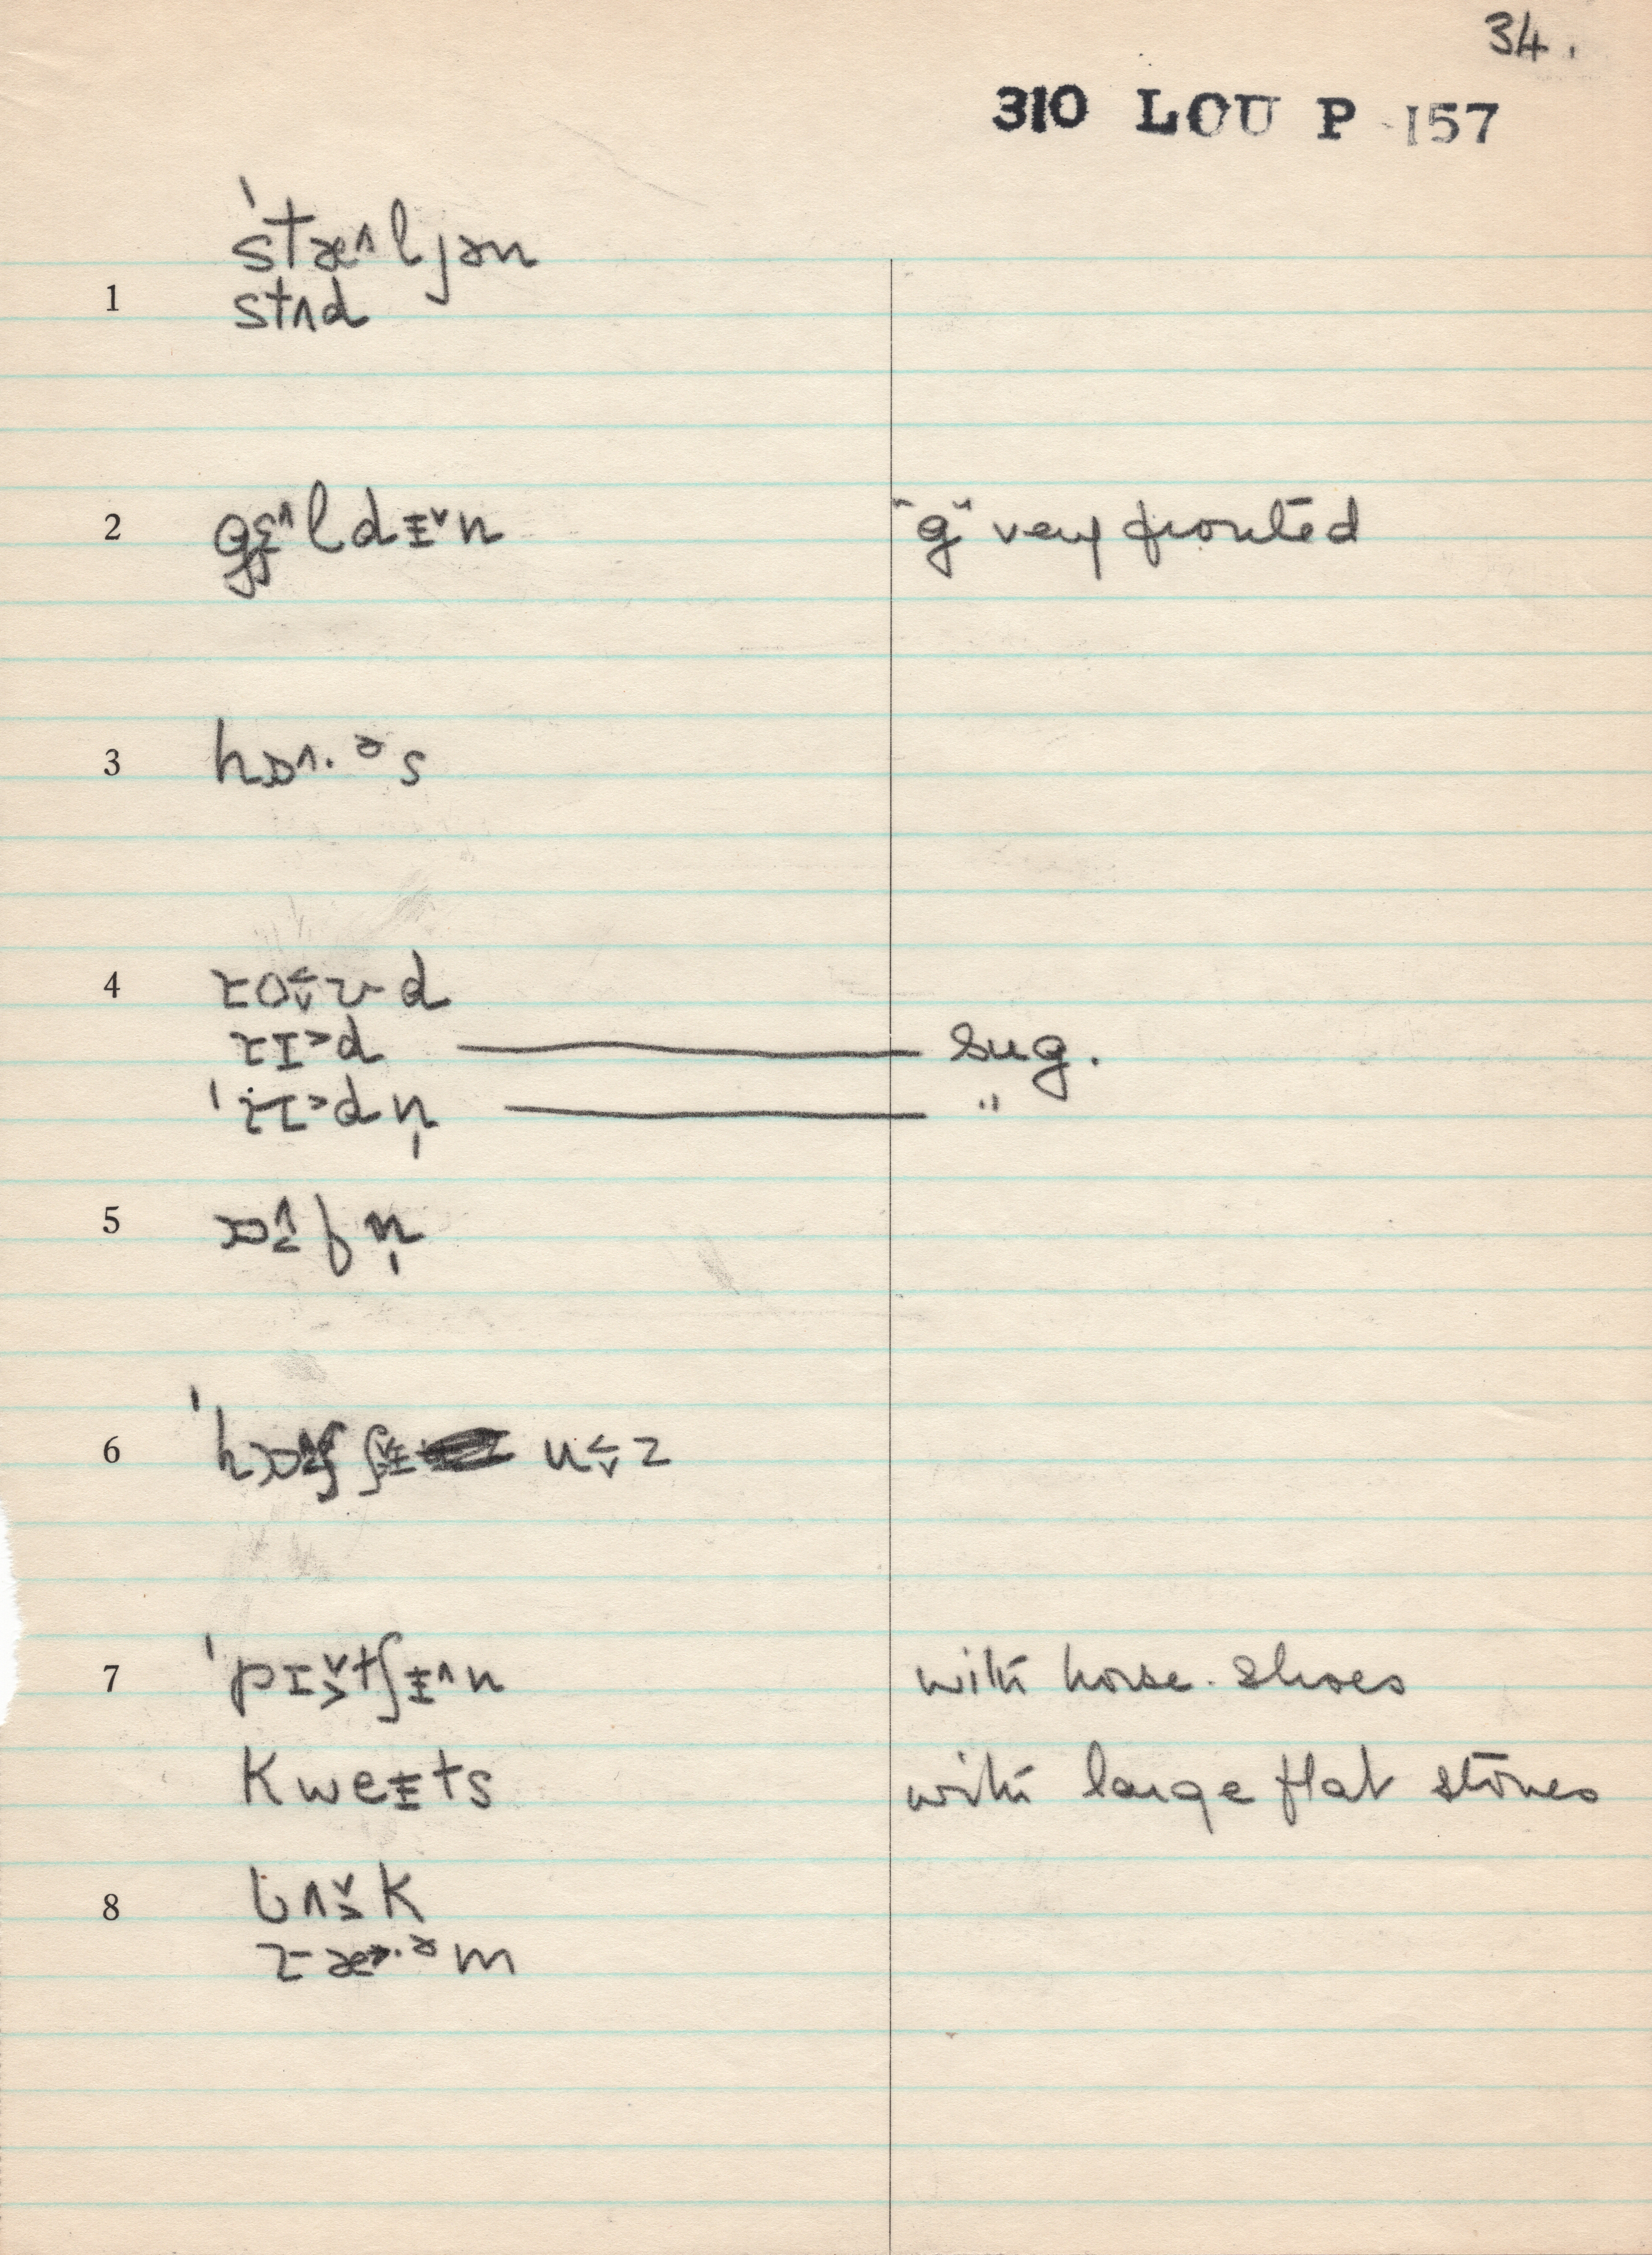 34.
310 LOU P 157
ˈstæ^ljən
1 stʌd
2 gɛ̨^ldɪ̵ˇn "g" very fronted
3 hɒ^.ᵊs
4 ɾo˂ˇʊd
ɾɪ˃d sug.
ˈɾɪ˃dn̩ "
5 ɒ^˂fn̩
6
7 ˈpɪˇ˃tʃɪ̵^n with horse-shoes
kweɪ̵ts with large flat stones
8 bʌˇ˃k
ɾæ˃.ᵊm